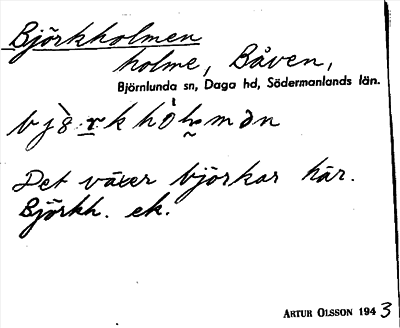 Björkholmen
holme, Båven,
Björnlunda sn, Daga hd, Södermanlands län.
Det växer björkar här.
Björkh. ek.
ARTUR OLSSON 1943